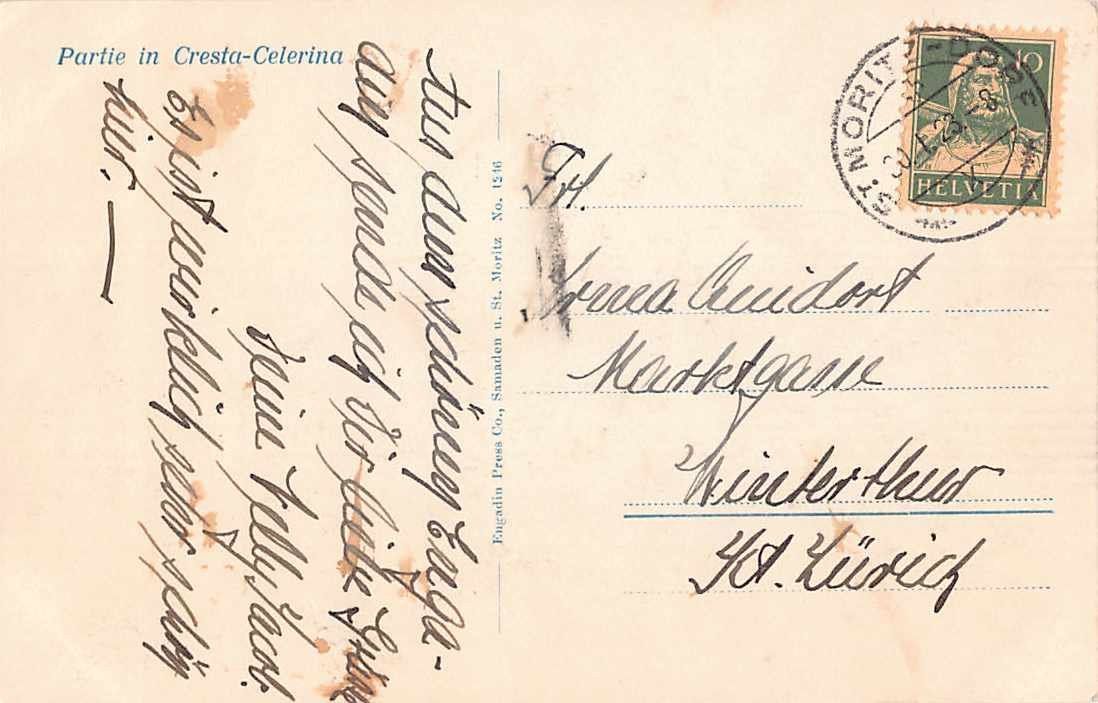 Partie in Cresta-Celerina
Aus dem schönen Enga-
din sende ich Dir liebe Grüsse
Deine Nelly Jacob.
Es ist wirklich sehr schön
hier. —
Engadin Press Co., Samaden u. St. Moritz No. 1246
ST. MORITZ-DORF
HELVETIA
10
Frl.
Irma
Marktgasse
Winterthur
Kt. Zürich